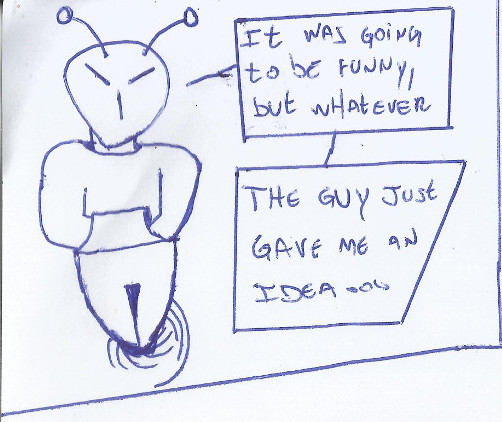 It WAS GOING
to bE FUNNY,
but WHATEVER
THE GUY JUSt
GAVE ME AN
IDEA...